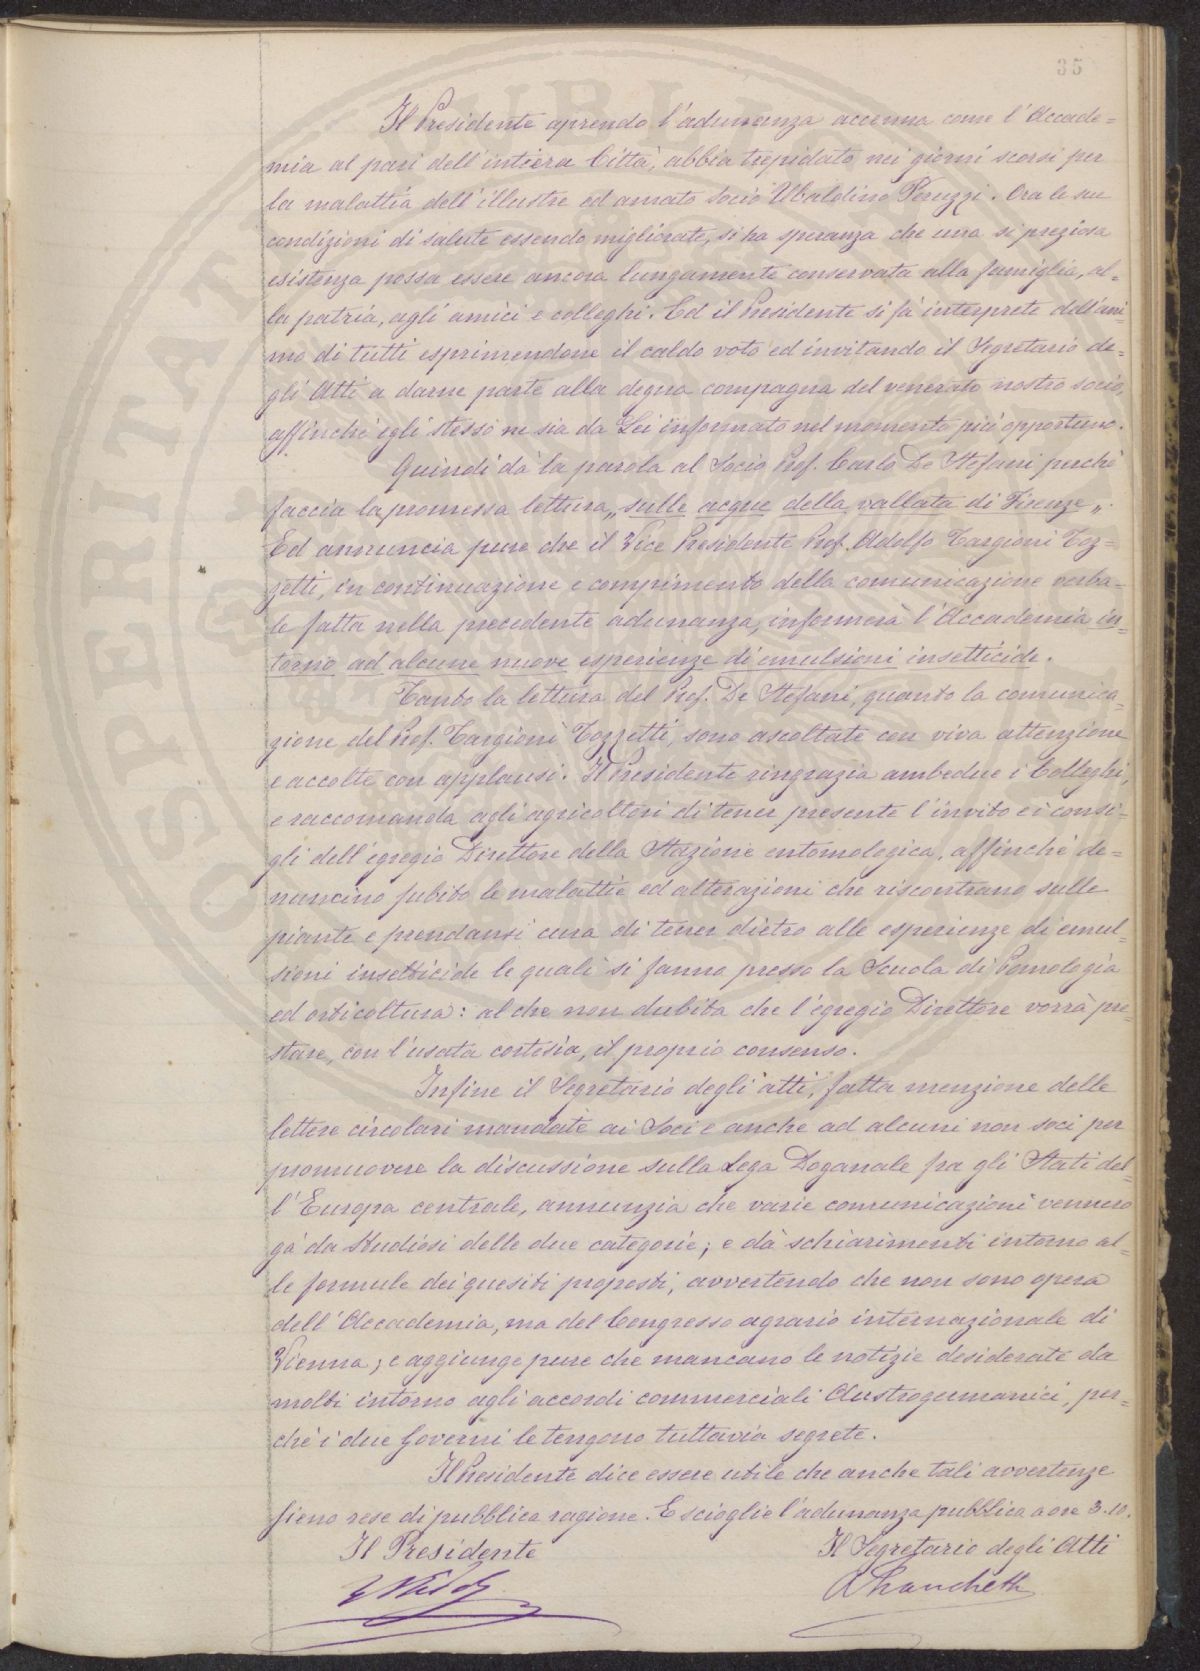 35
Il Presidente aprendo l'adunanza accenna come l'Accade=
mia al pari dell'intiera Città, abbia trepidato nei giorni scorsi per
la malattia dell'illustre ed amato socio Ubaldino Peruzzi. Ora le sue
condizioni di salute essendo migliorate, si ha speranza che una si preziosa
esistenza possa essere ancora lungamente conservata alla famiglia, al=
la patria, agli amici e colleghi. Ed il Presidente si fà interprete dell'ani=
mo di tutti esprimendone il caldo voto ed invitando il Segretario de=
gli Atti a darne parte alla degna compagna del venerato nostro socio,
affinchè egli stesso ne sia da Lei informato nel momento più opportuno.
Quindi dà la parola al Socio Prof. Carlo De Stefani perchè
faccia la promessa lettura „sulle acque della vallata di Firenze„.
Ed annuncia pure che il Vice Presidente Prof. Adolfo Targioni Toz=
zetti, in continuazione e compimento della comunicazione verba=
le fatta nella precedente adunanza, informerà l'Accademia in=
torno ad alcune nuove esperienze di emulsioni insetticide.
Tanto la lettura del Prof. De Stefani, quanto la comunica=
zione del Prof. Targioni Tozzetti, sono ascoltate con viva attenzione
e accolte con applausi. Il Presidente ringrazia ambedue i Colleghi,
e raccomanda agli agricoltori di tener presente l'invito e i consi=
gli dell'egregio Direttore della Stazione entomologica, affinchè de=
nuncino subito le malattie ed alterazioni che riscontrano sulle
piante e prendansi cura di tener dietro alle esperienze di emul=
sioni insetticide le quali si fanno presso la Scuola di Pomologia
ed orticoltura: al che non dubita che l'egregio Direttore vorrà pre=
stare, con l'usata cortesia, il proprio consenso.
Infine il Segretario degli atti, fatta menzione delle
lettere circolari mandate ai Soci e anche ad alcuni non soci per
promuovere la discussione sulla Lega Doganale fra gli Stati del=
l'Europa centrale, annunzia che varie comunicazioni vennero
gà da Studiosi delle due categorie; e dà schiarimenti intorno al=
le formule dei quesiti proposti, avvertendo che non sono opera
dell'Accademia, ma del Congresso agrario internazionale di
Vienna; e aggiunge pure che mancano le notizie desiderate da
molti intorno agli accordi commerciali Austrogermanici, per=
chè i due Governi le tengono tuttavia segrete.
Il Presidente dice essere utile che anche tali avvertenze
sieno rese di pubblica ragione. E scioglie l'adunanza pubblica a ore 3.10.
Il Presidente
Il Segretario degli Atti